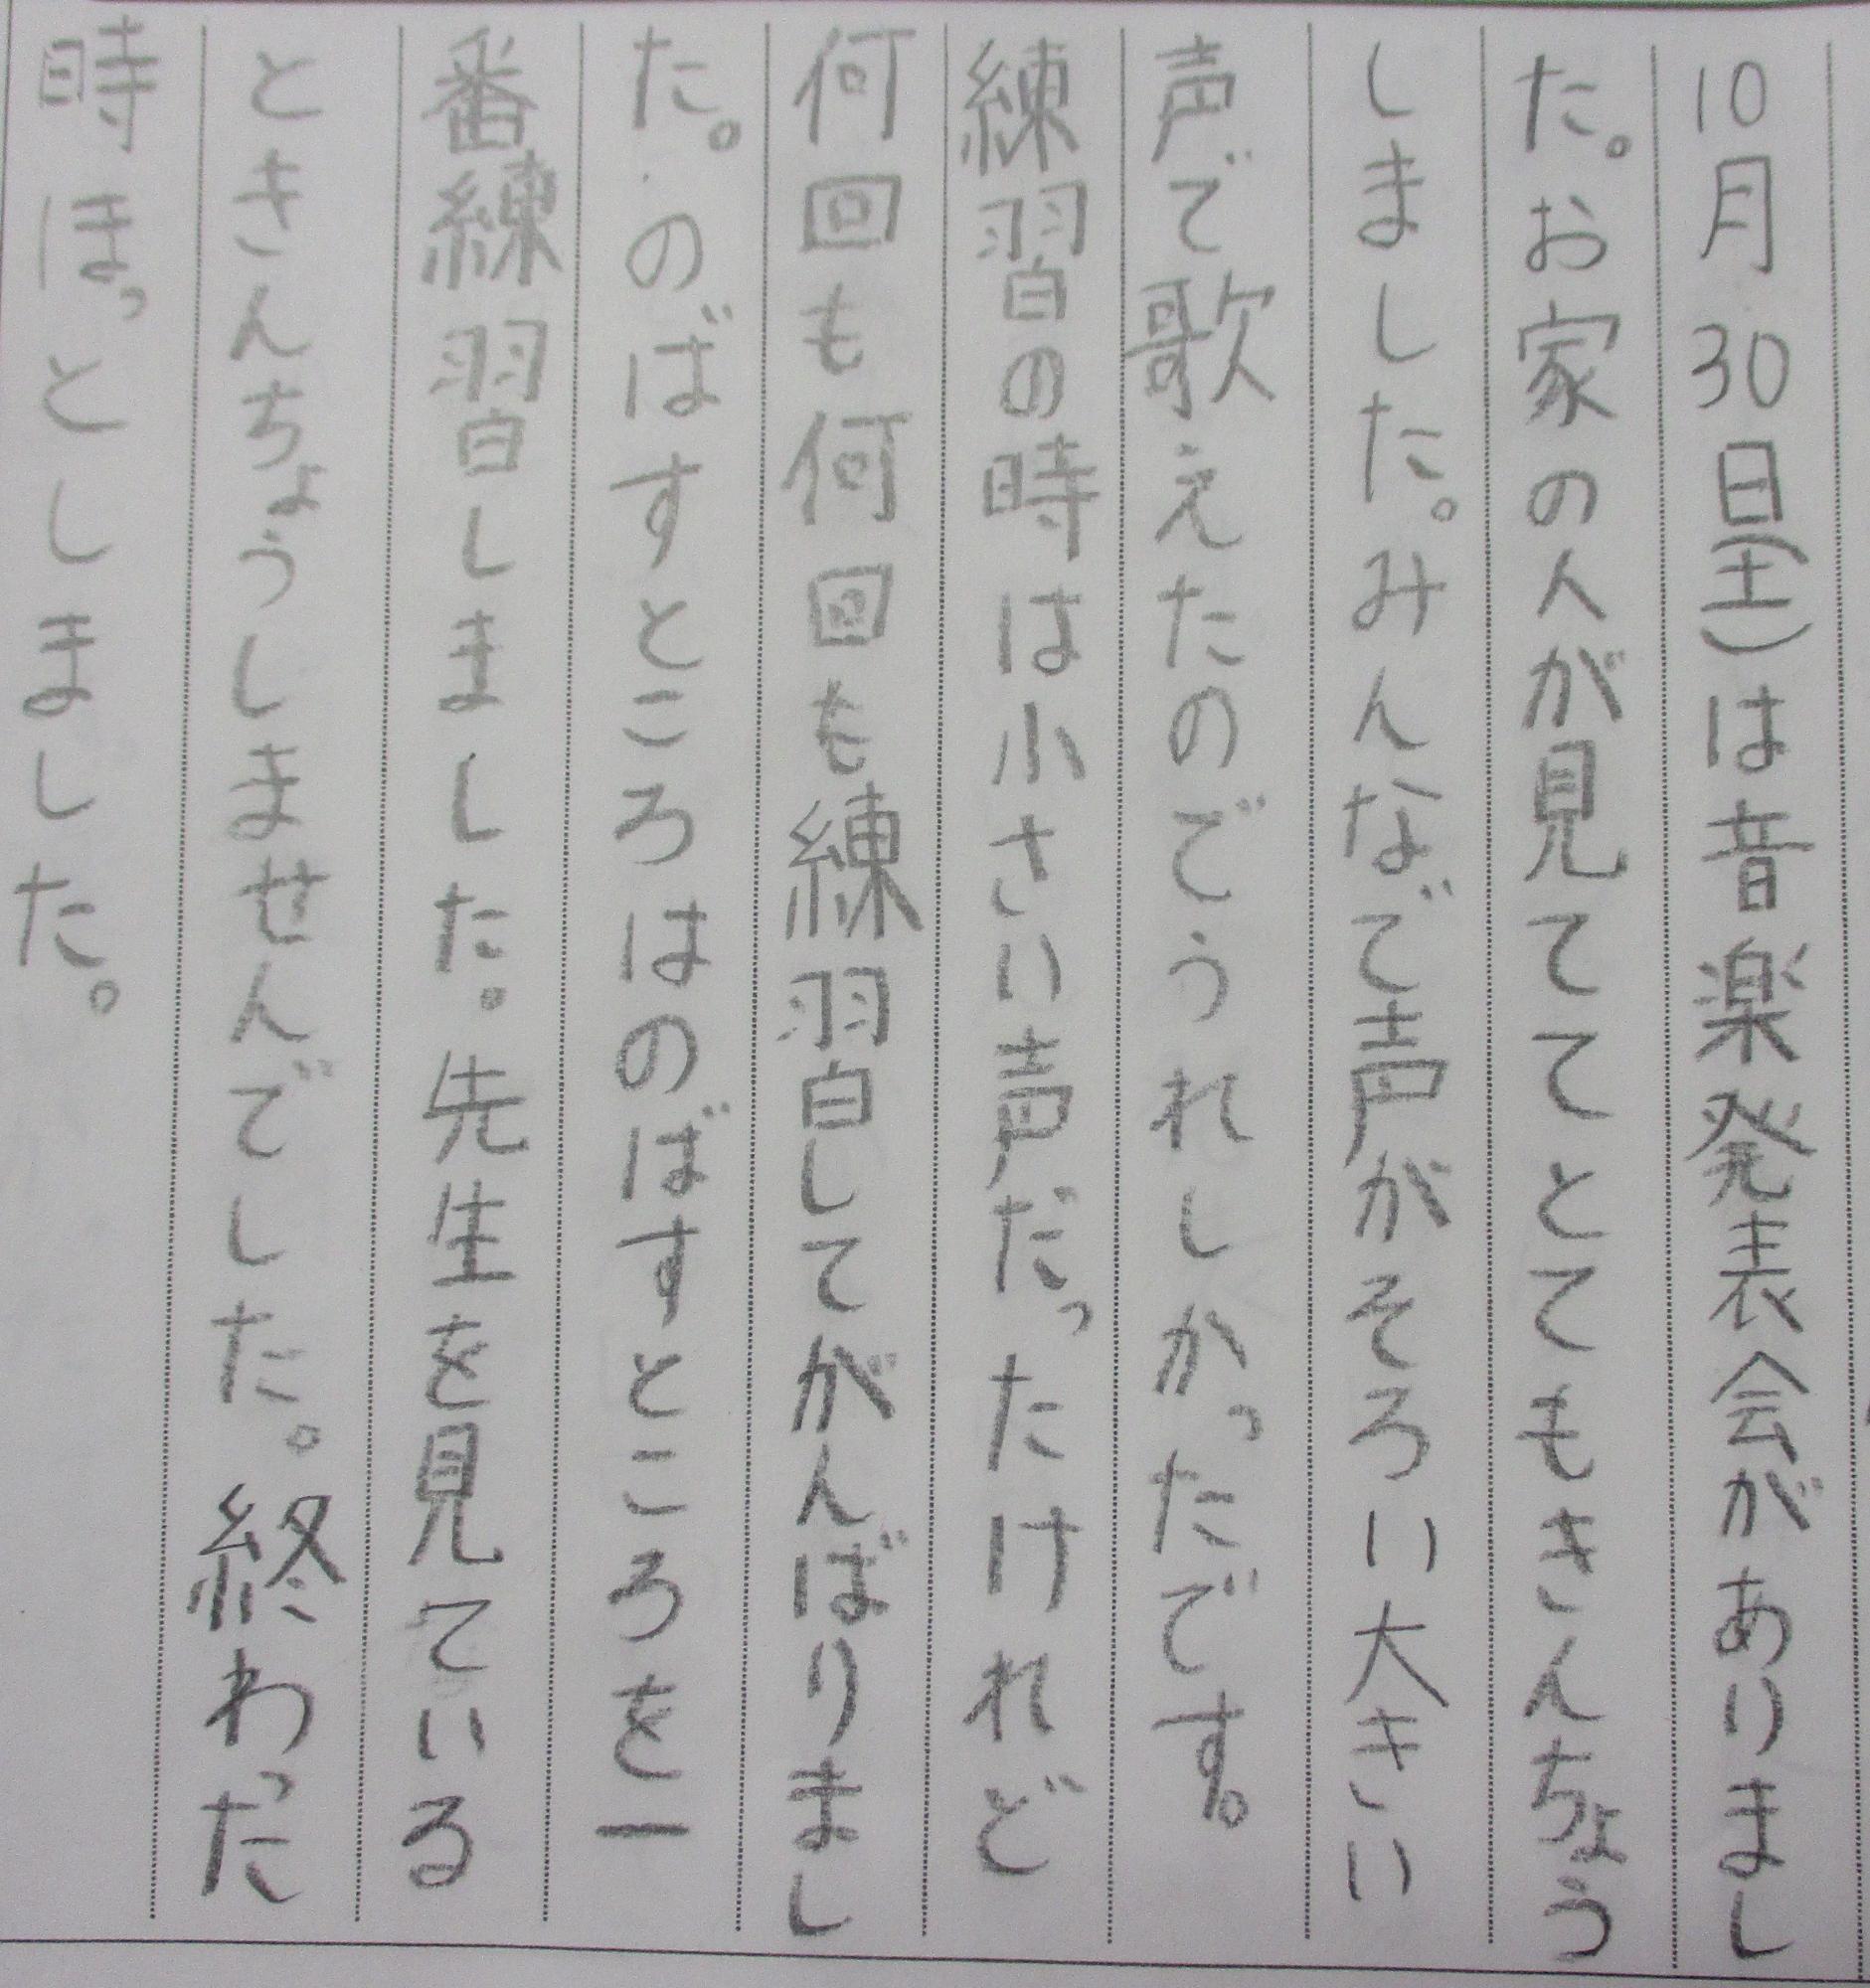 10月30日(土)は音楽発表会がありまし
た。お家の人が見ててとてもきんちょう
しました。みんなで声がそろい大きい
声で歌えたのでうれしかったです。
練習の時は小さい声だったけれど
何回も何回も練習してがんばりまし
た。のばすところはのばすところを一
番練習しました。先生を見ている
ときんちょうしませんでした。終わった
時ほっとしました。